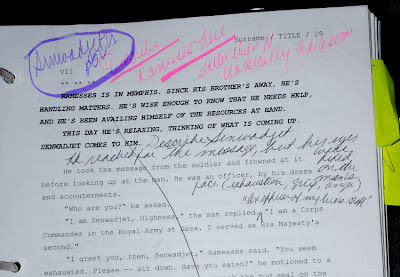 Senwadjet's
POV
Surname / TITLE / 29
Describe
Ramesses here
VII
** ** **
classically handsome
RAMESSES IS IN MEMPHIS. SINCE HIS BROTHER'S AWAY, HE'S
HANDLING MATTERS. HE'S WISE ENOUGH TO KNOW THAT HE NEEDS HELP,
AND HE'S BEEN AVAILING HIMSELF OF THE RESOURCES AT HAND.
THIS DAY HE'S RELAXING, THINKING OF WHAT IS COMING UP.
SENWADJET COMES TO HIM.
Describe Senwadjet
He reached for the message, but his eyes
He took the message from the soldier and frowned at it
were
before looking up at the man. He was an officer, by his dress
fixed
on the
and accouterments.
face (exhaustion, grief, anger)
man's
"Who are you?" he asked.
"An officer of my bro's staff"
"I am Senwadjet, Highness," the man replied. "I am a Corps
Commander in the Royal Army at Gaza. I served as His Majesty's
second."
"I greet you, then, Senwadjet," Ramesses said. "You seem
exhausted. Please -- sit down. Have you eaten?" he motioned to a
mud seal on the